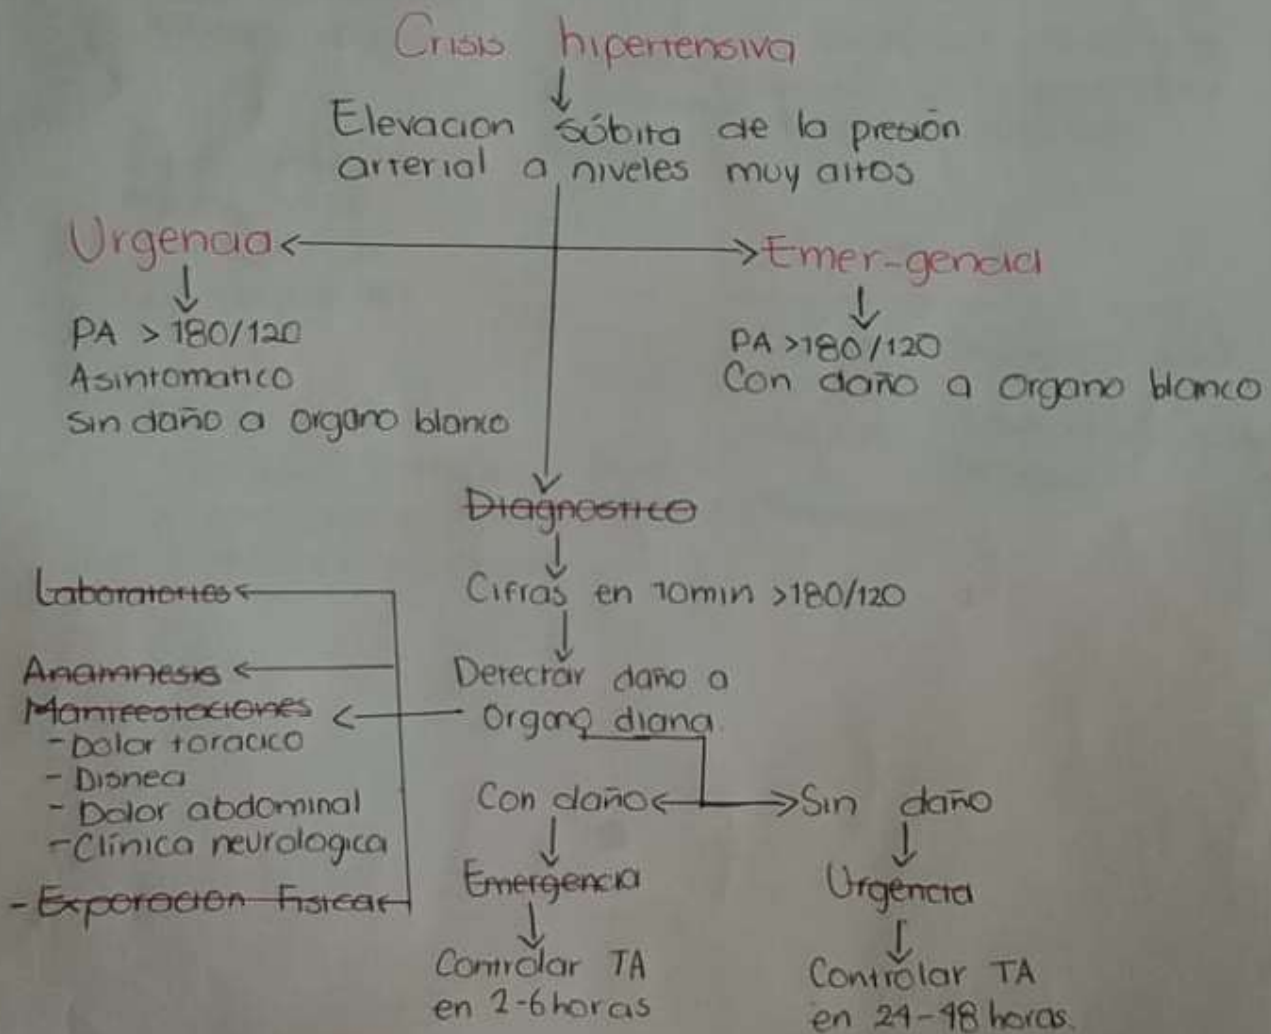 Crisis hipertensiva
Elevacion súbita de la presión
arterial a niveles muy altos
Urgencia
Emer-gencia
PA > 180/120
Asintomatico
Sin daño a organo blanco
PA >180/120
Con daño a organo blanco
Diagnostico
Cifras en 10min >180/120
Detectar daño a
organo diana.
Laboratories
Anamnesis
Manifestaciones
- Dolor toracico
- Disnea
- Dolor abdominal
- Clínica neurologica
- Exporacion Fisica
Con daño
Sin daño
Emergencia
Urgencia
Controlar TA
en 2-6 horas
Controlar TA
en 24-48 horas.